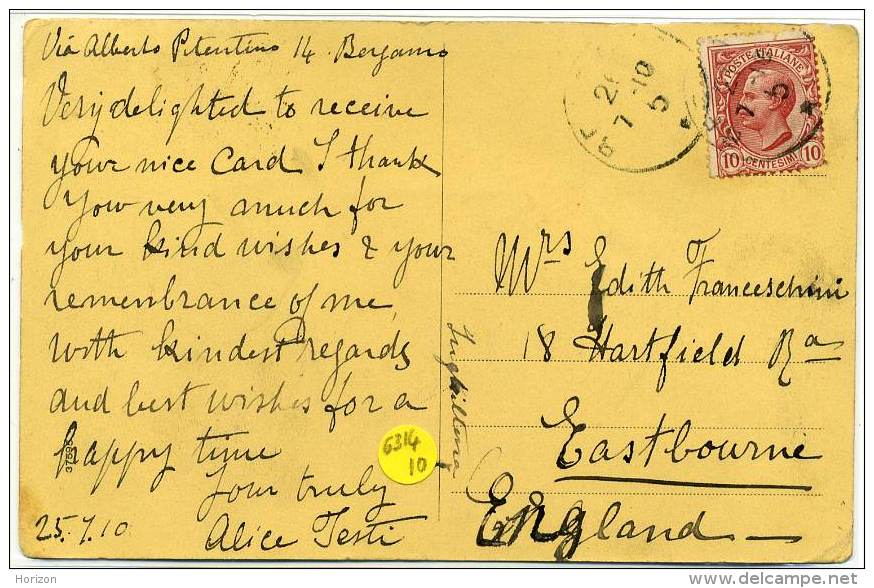 Via Alberto Pitentino 14 Bergamo
Very delighted to receive
your nice Card I thank
you very much for
your kind wishes & your
remenbrance of me
with kindest regards
and best wishes for a
happy time
your truly
25.7.10 Alice Testi
Mrs Edith Franceschini
18 Hartfield Ra
Eastbourne
England
Inghilterra
POSTE ITALIANE
10 CENTESIMI 10
7 10
5
6314
10
©Horizon
www.delcampe.net